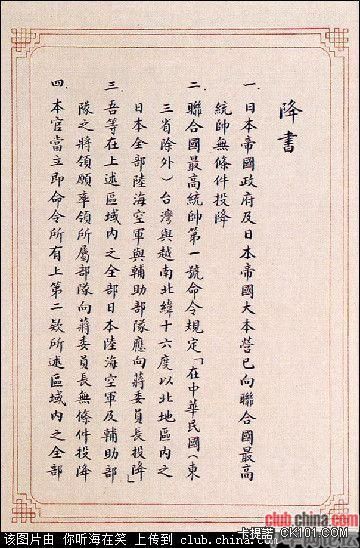 降書
一. 日本帝國政府及日本帝國大本營已向聯合國最高
統帥無條件投降
二. 聯合國最高統帥第一號命令規定「在中華民國(東
三省除外)台灣與越南北緯十六度以北地區內之
日本全部陸海空軍與輔助部隊應向蔣委員長投降」
三. 吾等在上述區域內之全部日本陸海空軍及輔助部
隊之將領願率領所屬部隊向蔣委員長無條件投降
四. 本官當立即命令所有上第二欵所述區域內之全部
club.china.com
卡提諾 CK101.COM
该图片由 你听海在笑 上传到 club.china.com